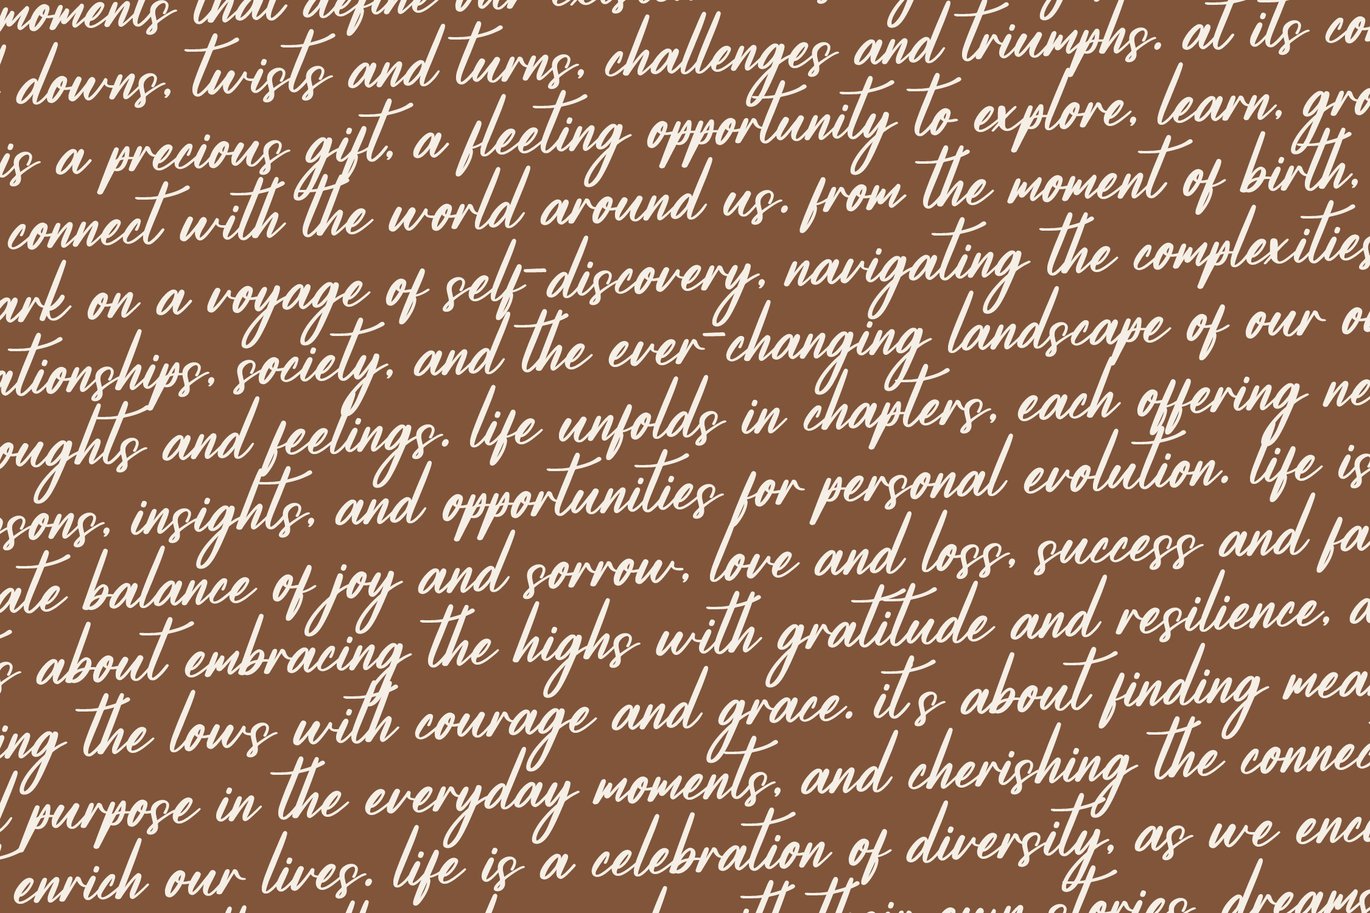 moments that define our
downs, twists and turns, challenges and triumphs. at its
is a precious gift, a fleeting opportunity to explore, learn,
connect with the world around us. from the moment of birth,
ark on a voyage of self-discovery, navigating the complexities
ationships, society, and the ever-changing landscape of our
oughts and feelings. life unfolds in chapters, each offering ne
ssons, insights, and opportunities for personal evolution. life is
ate balance of joy and sorrow, love and loss, success and fa
s about embracing the highs with gratitude and resilience, a
ing the lows with courage and grace. it's about finding mea
purpose in the everyday moments, and cherishing the connec
enrich our lives. life is a celebration of diversity, as we enc
their own stories, dreams